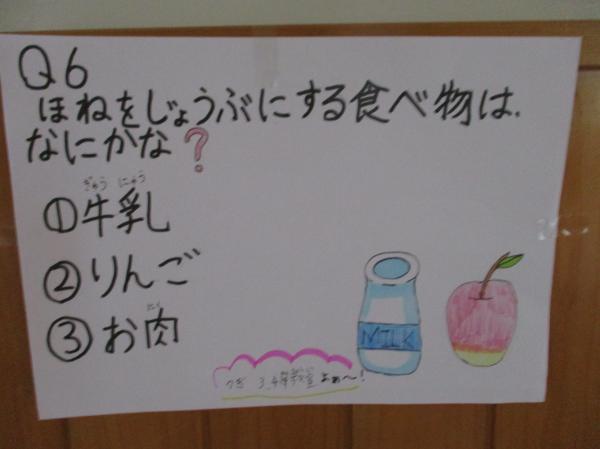 Q6
ほねをじょうぶにする食べ物は、
なにかな?
①牛乳
ぎゅう にゅう
②りんご
③お肉
にく
MILK
つぎ 3.4年教室 よぉ〜!